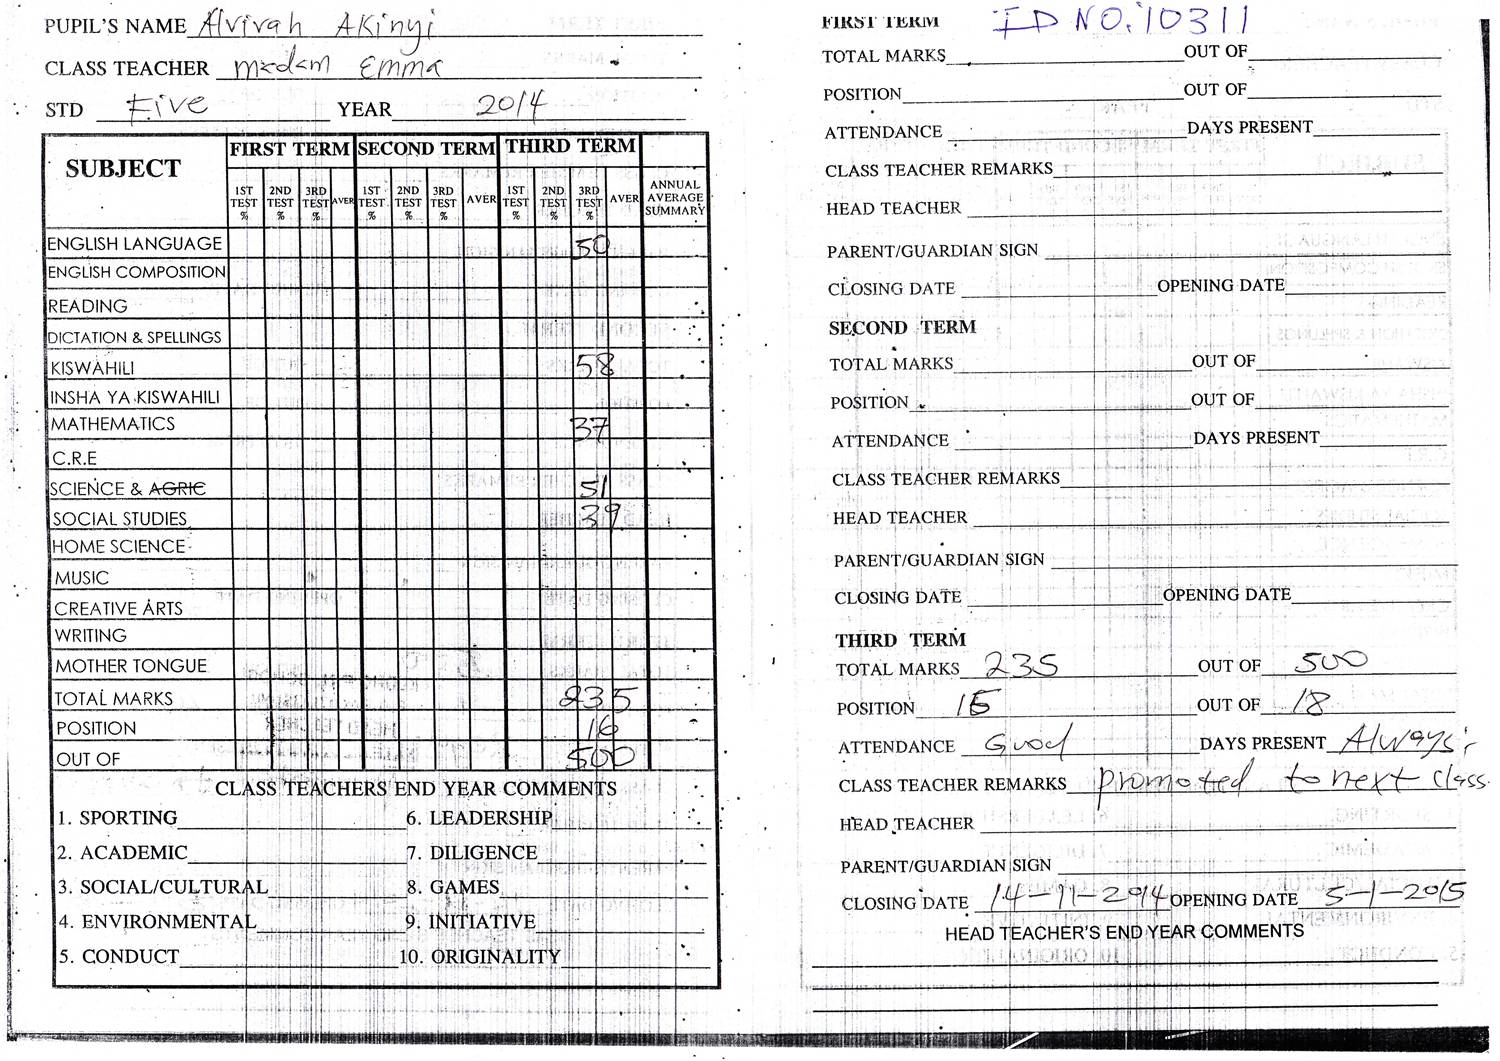 PUPIL'S NAME Alvirah Akinyi
CLASS TEACHER madam Emma
STD Five YEAR 2014
SUBJECT FIRST TERM SECOND TERM THIRD TERM
1ST TEST % 2ND TEST % 3RD TEST % AVER 1ST TEST % 2ND TEST % 3RD TEST % AVER 1ST TEST % 2ND TEST % 3RD TEST % AVER ANNUAL AVERAGE SUMMARY
ENGLISH LANGUAGE 50
ENGLISH COMPOSITION
READING
DICTATION & SPELLINGS
KISWAHILI 58
INSHA YA KISWAHILI
MATHEMATICS 37
C.R.E
SCIENCE & AGRIC 51
SOCIAL STUDIES 39
HOME SCIENCE
MUSIC
CREATIVE ARTS
WRITING
MOTHER TONGUE
TOTAL MARKS 235
POSITION 16
OUT OF 500
CLASS TEACHERS END YEAR COMMENTS
1. SPORTING 6. LEADERSHIP
2. ACADEMIC 7. DILIGENCE
3. SOCIAL/CULTURAL 8. GAMES
4. ENVIRONMENTAL 9. INITIATIVE
5. CONDUCT 10. ORIGINALITY
FIRST TERM ID NO. 10311
TOTAL MARKS OUT OF
POSITION OUT OF
ATTENDANCE DAYS PRESENT
CLASS TEACHER REMARKS
HEAD TEACHER
PARENT/GUARDIAN SIGN
CLOSING DATE OPENING DATE
SECOND TERM
TOTAL MARKS OUT OF
POSITION OUT OF
ATTENDANCE DAYS PRESENT
CLASS TEACHER REMARKS
HEAD TEACHER
PARENT/GUARDIAN SIGN
CLOSING DATE OPENING DATE
THIRD TERM
TOTAL MARKS 235 OUT OF 500
POSITION OUT OF 18
ATTENDANCE Good DAYS PRESENT Always
CLASS TEACHER REMARKS promoted to next class.
HEAD TEACHER
PARENT/GUARDIAN SIGN
CLOSING DATE 14-11-2014 OPENING DATE 5-1-2015
HEAD TEACHER'S END YEAR COMMENTS